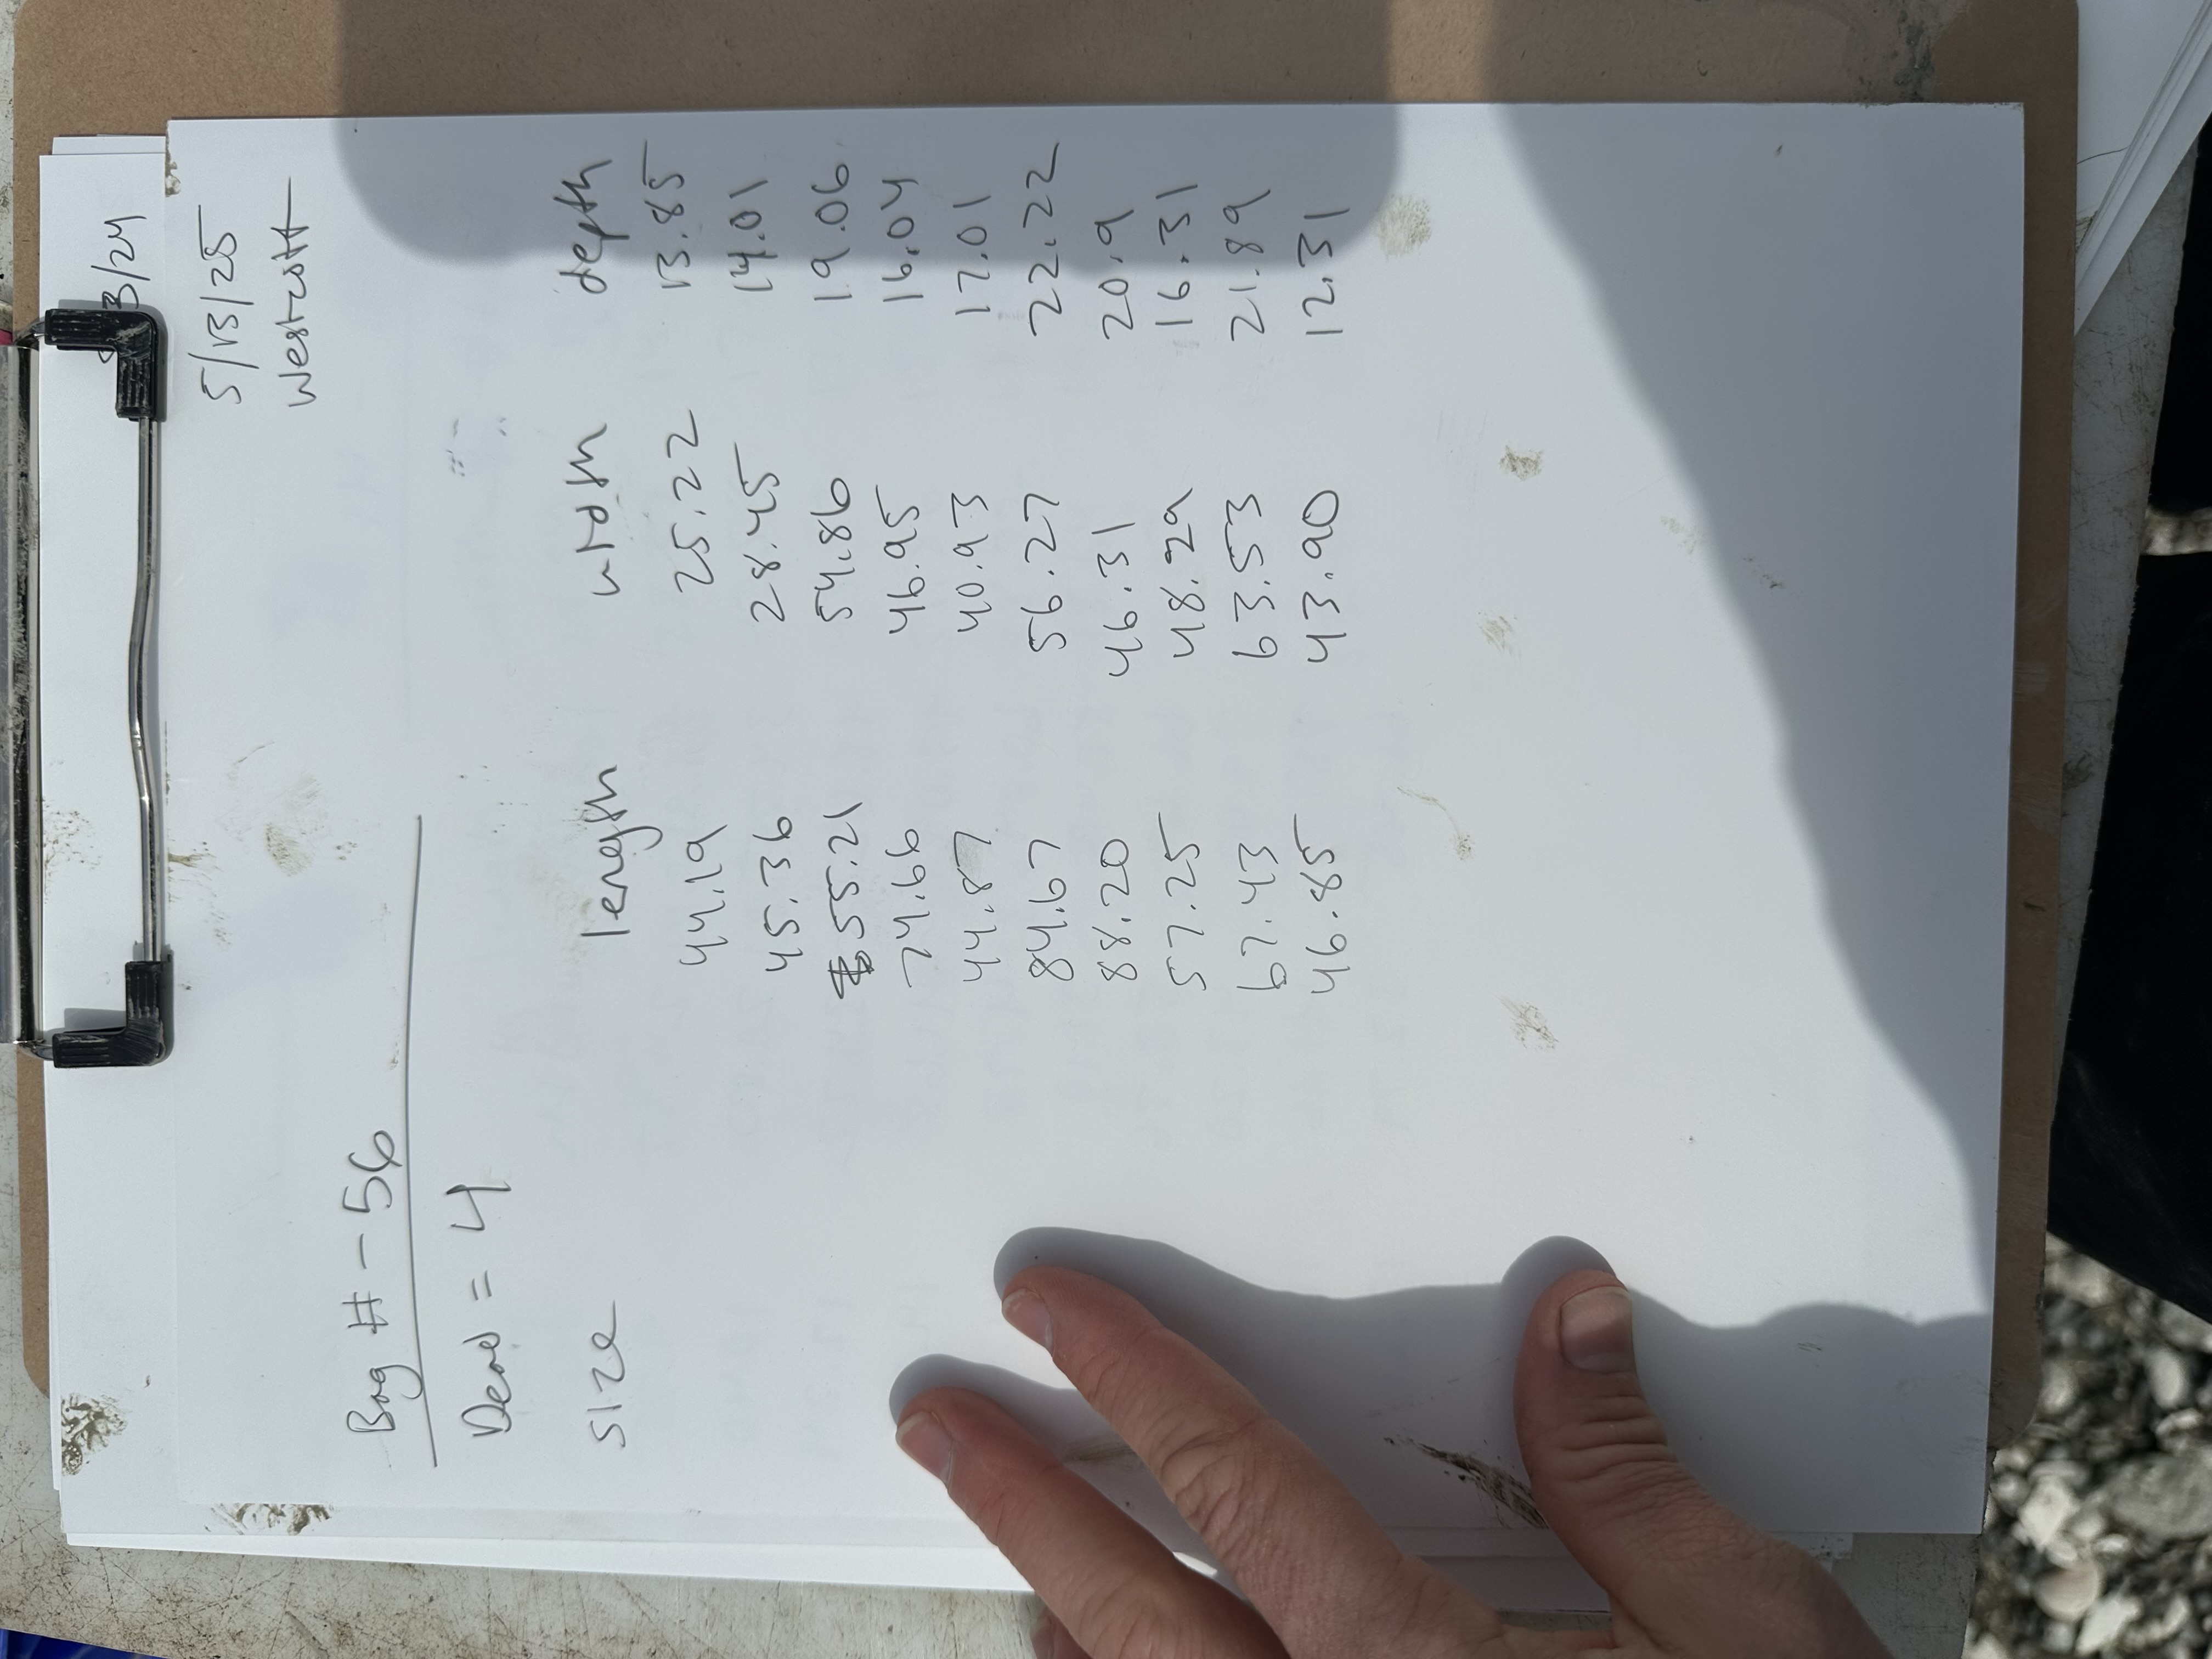 3/24
5/13/25
Westcott
Bag # - 56
Dead = 4
size length width depth
44.19 25.22 13.85
45.36 28.45 14.01
55.21 54.86 19.06
74.66 46.95 16.04
44.87 40.93 17.01
84.67 56.27 22.22
88.20 46.31 20.9
57.25 48.29 16.31
67.43 63.53 21.89
46.85 43.90 12.31